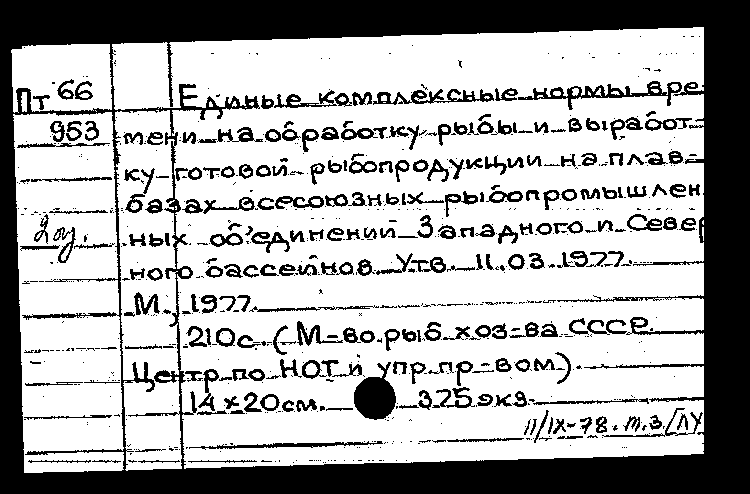 Пт 66 Единые комплексные нормы вре-
953 мени на обработку рыбы и выработ-
ку готовой рыбопродукции на плав-
базах всесоюзных рыбопромышлен
2 оц. ных об'единений Западного и Север
ного бассейнов. Утв. 11.03.1977.
М., 1977.
210с. (М-во рыб. хоз-ва СССР.
Центр по НОТ и упр. пр-вом).
14×20см. 325 экз.
11/IX-78. т.3